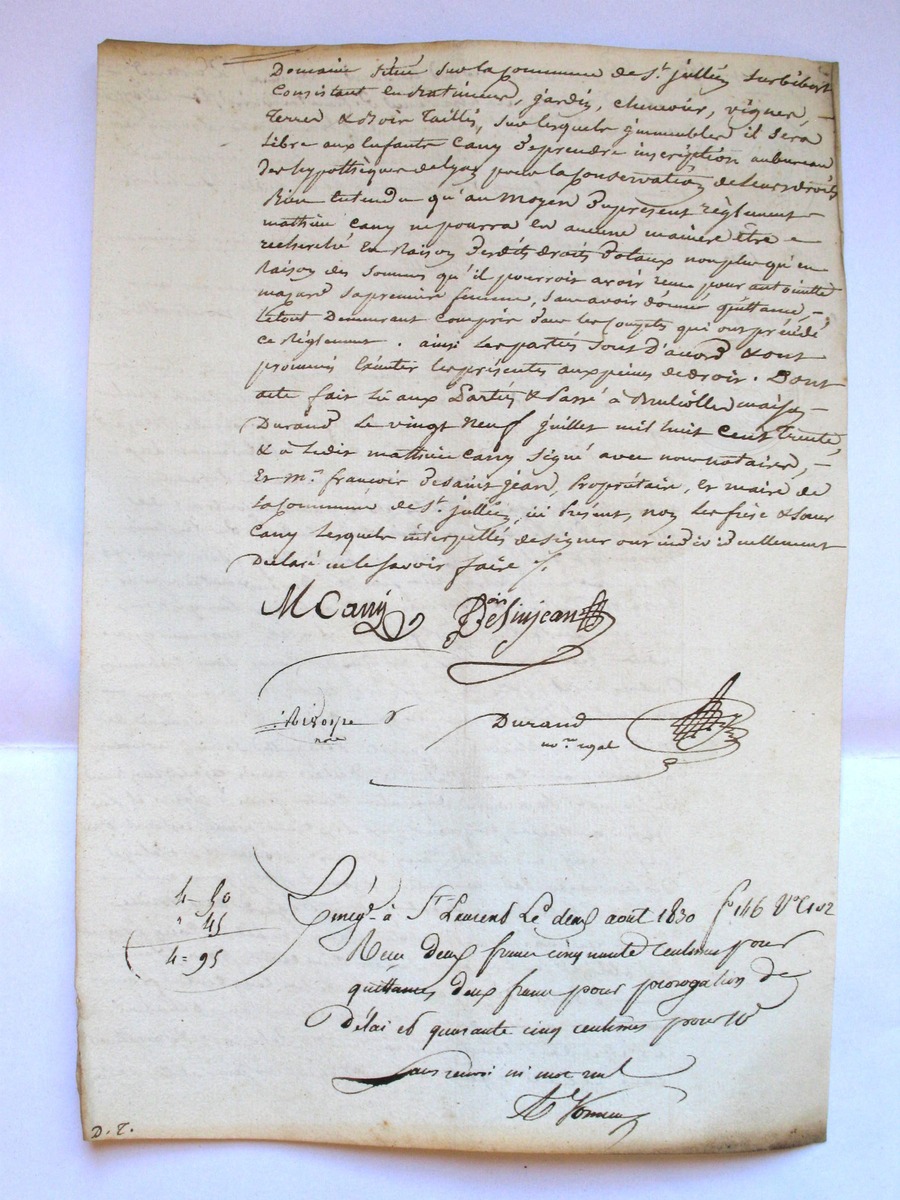 Domaine situé sur la Commune de St. jullien sur bibost
Consistant en batiments, jardin, cheneviér, vignes,
terres & Bois taillis, sur lesquels jmmeubles il sera
Libre aux Enfants Cany de prendre inscription au bureau
des hypothèques de Lyon pour la Conservation de leurs droits
Bien Entendu qu'au moyen du présent Règlement
mathieu Cany ne pourra en aucune manière être
recherché En Raison desdits droits dotaux non plus qu'en
Raison des sommes qu'il pourroit avoir reçu pour antoinette
sa première femme, sans avoir donné quittance,
le tout Demeurant compris dans les Comptes qui ont précédé
ce Règlement. ainsi les parties sont d'accord & ont
promis Exécuter les présentes aux peines de droit. Dont
acte fait Lû aux Parties & Passé à maison
Durand Le vingt Neuf juillet mil huit Cent Trente,
& a Ledit mathieu Cany signé avec nous notaires,
Et Mr. françois desaint jean, Propriétaire, Et maire de
la Commune de St. jullien, ici Présent, non Les frère & sœur
Cany Lesquels interpellés de signer ont individuellement
Déclaré ne le savoir faire /.
M Cany Desinjean
Durand
no.re royal
4 - 50
" 45
4 = 95
Enregé à St Laurend Le deux août 1830 fo 146 Vo C 1 et 2
Reçu deux francs cinquante centimes pour
quittances deux francs pour prorogation de
Délai et quarante cinq centimes pour 10e
Sans renvoi ni mot nul
D. T.